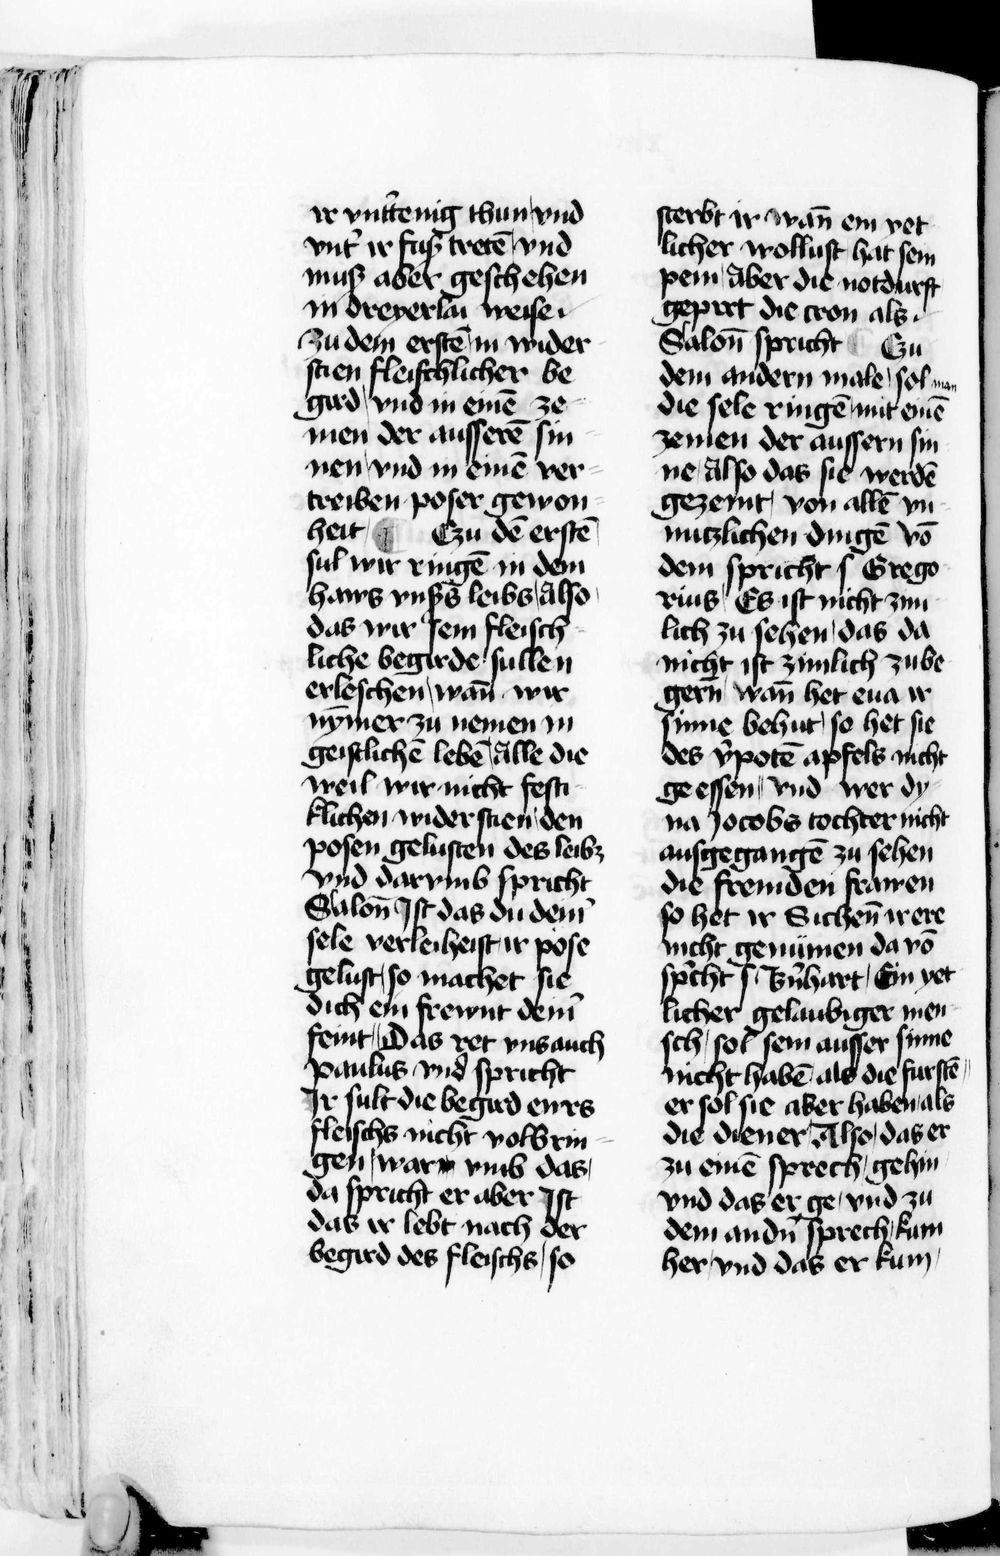 ir vnttenig thun / vnd
vnt' ir fuß tretē / vnd
muß aber geschehen
in dreyerlai weise ·
Zu dem erstē in wider-
stien fleischlicher be
gird / vnd in einē ze-
men der ausserē sin-
nen / vnd in einē ver-
treiben poser gewon-
heit / ¶ Czu dē erstē
sul wir ringē in dem
haws vnsʼs leibs / Also
das wir sein fleisch-
liche begirde sullen
erleschen / wan̄ wir
nȳmer zu nemen in
geistlichē lebē / Alle die
weil wir nicht festi-
klichen widerstien / den
posen gelusten des leibz
vnd darvmb spricht
Salon̄ Ist das du dein'
sele verleiheist ir pose
gelust / so machet sie
dich ein frewnt dein'
feint / Das ret vns auch
paulus vnd' spricht
Ir sult die begird ewrs
fleischs nicht volbrin-
gen / warvmb das /
da spricht er aber Ist
das ir lebt nach der
begird des fleischs / so
sterbt ir wan̄ ein yet
licher wollust hat sein
pein / Aber die notdurft
gepirt die cron als ·
Salon̄ spricht ¶ Czu
dem andern male / sol man
die sele ringē mit einē
zemen der aussern sin
ne / Also das sie werdē
gezemt / von allē vn-
nutzlichen dingē Vō
dem spricht s Grego
rius / Es ist nicht zim
lich zu sehen / das da
nicht ist zimlich zu be
gern̄ / wan̄ het eua ir
sinne behut / so het sie
des v'potē apfels nicht
geessen / Vnd wer dy-
na Jocobs tochter nicht
ausgegangē zu sehen
die fremden frawen
so het ir Sichen̄ ir ere
nicht genumen da vō
sp'cht s Bn̄hart / Ein yet
licher gelaubiger men-
sch / sol sein ausser sinne
nicht habē als die furstē /
er sol sie aber haben / als
die diener / Also / das er
zu einē sprech / gehin
vnd das er ge / vnd zu
dem andn̄ sprech / kum
her / vnd das er kum /